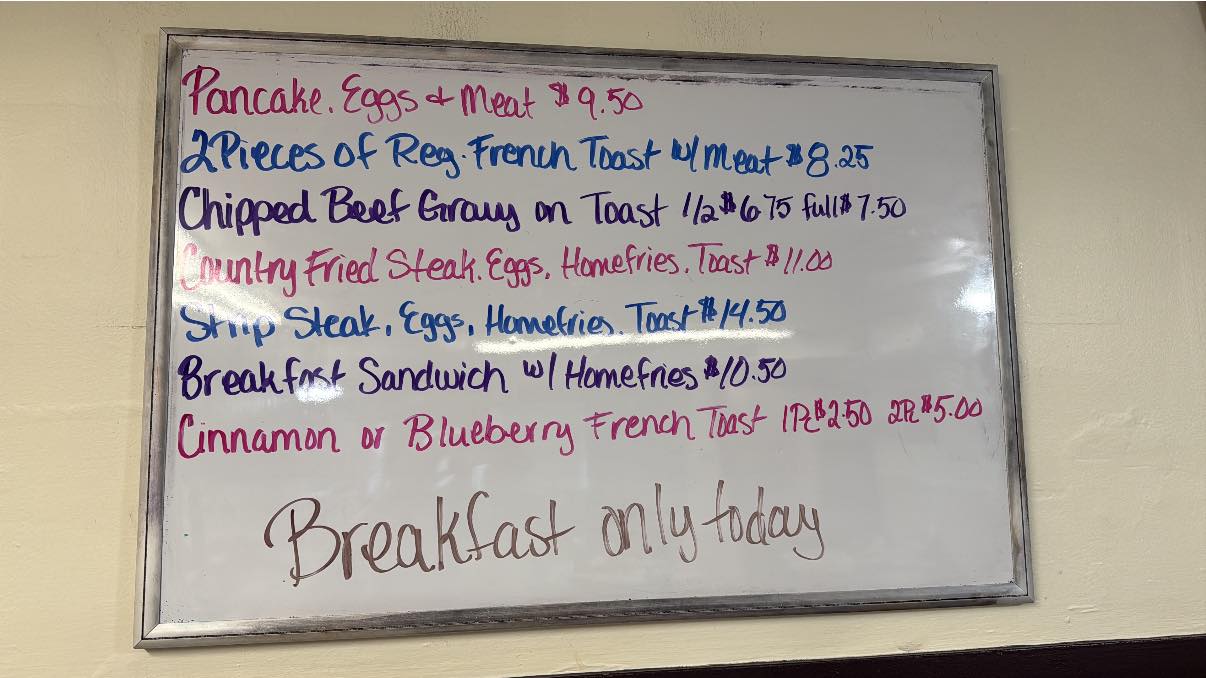 Pancake. Eggs & Meat $9.50
2 Pieces of Reg. French Toast w/ Meat $8.25
Chipped Beef Gravy on Toast 1/2 $6.75 full $7.50
Country Fried Steak. Eggs. Homefries. Toast $11.00
Strip Steak, Eggs, Homefries. Toast $14.50
Breakfast Sandwich w/ Homefries $10.50
Cinnamon or Blueberry French Toast 1Pc $2.50 2Pc $5.00
Breakfast only today